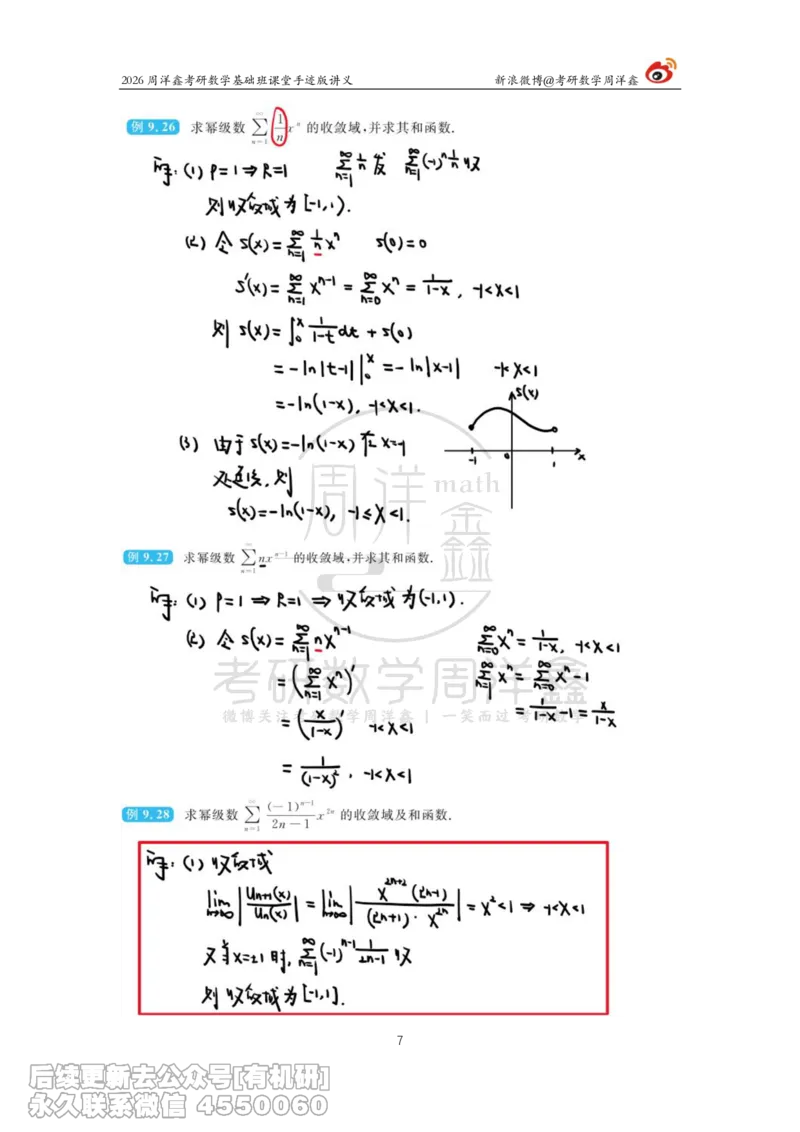 2026 周洋鑫考研数学基础班课堂手迹版讲义 新浪微博@考研数学周洋鑫
例 9.26 求幂级数 ∑_{n=1}^{∞} (1/n) x^n 的收敛域,并求其和函数.
解: (1) ρ=1 ⇒ R=1 ∑_{n=1}^{∞} 1/n 发 ∑_{n=1}^{∞} (-1)^n 1/n 收
则收敛域为 [-1,1).
(2) 令 S(x) = ∑_{n=1}^{∞} (1/n) x^n S(0)=0
S'(x) = ∑_{n=1}^{∞} x^{n-1} = ∑_{n=0}^{∞} x^n = 1/(1-x) , -1<x<1
则 S(x) = ∫_0^x 1/(1-t) dt + S(0)
= -ln|t-1| |_0^x = -ln|x-1| -1<x<1
= -ln(1-x), -1<x<1.
S(x)
-1 0 1 x
(3) 由于 S(x)=-ln(1-x) 在 x=-1
处连续, 则
S(x)=-ln(1-x), -1≤x<1.
周洋鑫 math
例 9.27 求幂级数 ∑_{n=1}^{∞} n x^{n-1} 的收敛域,并求其和函数.
解: (1) ρ=1 ⇒ R=1 ⇒ 收敛域为 (-1,1).
(2) 令 S(x) = ∑_{n=1}^{∞} n x^{n-1} ∑_{n=0}^{∞} x^n = 1/(1-x), -1<x<1
= (∑_{n=1}^{∞} x^n)' ∑_{n=1}^{∞} x^n = ∑_{n=0}^{∞} x^n - 1
考研数学周洋鑫
= (x/(1-x))' -1<x<1 = 1/(1-x) - 1 = x/(1-x)
= 1/(1-x)^2 , -1<x<1
例 9.28 求幂级数 ∑_{n=1}^{∞} (-1)^{n-1}/(2n-1) x^{2n} 的收敛域及和函数.
解: (1) 收敛域
lim_{n→∞} |u_{n+1}(x)/u_n(x)| = lim_{n→∞} |x^{2n+2}(2n-1)/((2n+1)·x^{2n})| = x^2<1 ⇒ -1<x<1
又当 x=±1 时, ∑_{n=1}^{∞} (-1)^{n-1} 1/(2n-1) 收
则收敛域为 [-1,1].
7
后续更新去公众号[有机研]
永久联系微信 4550060